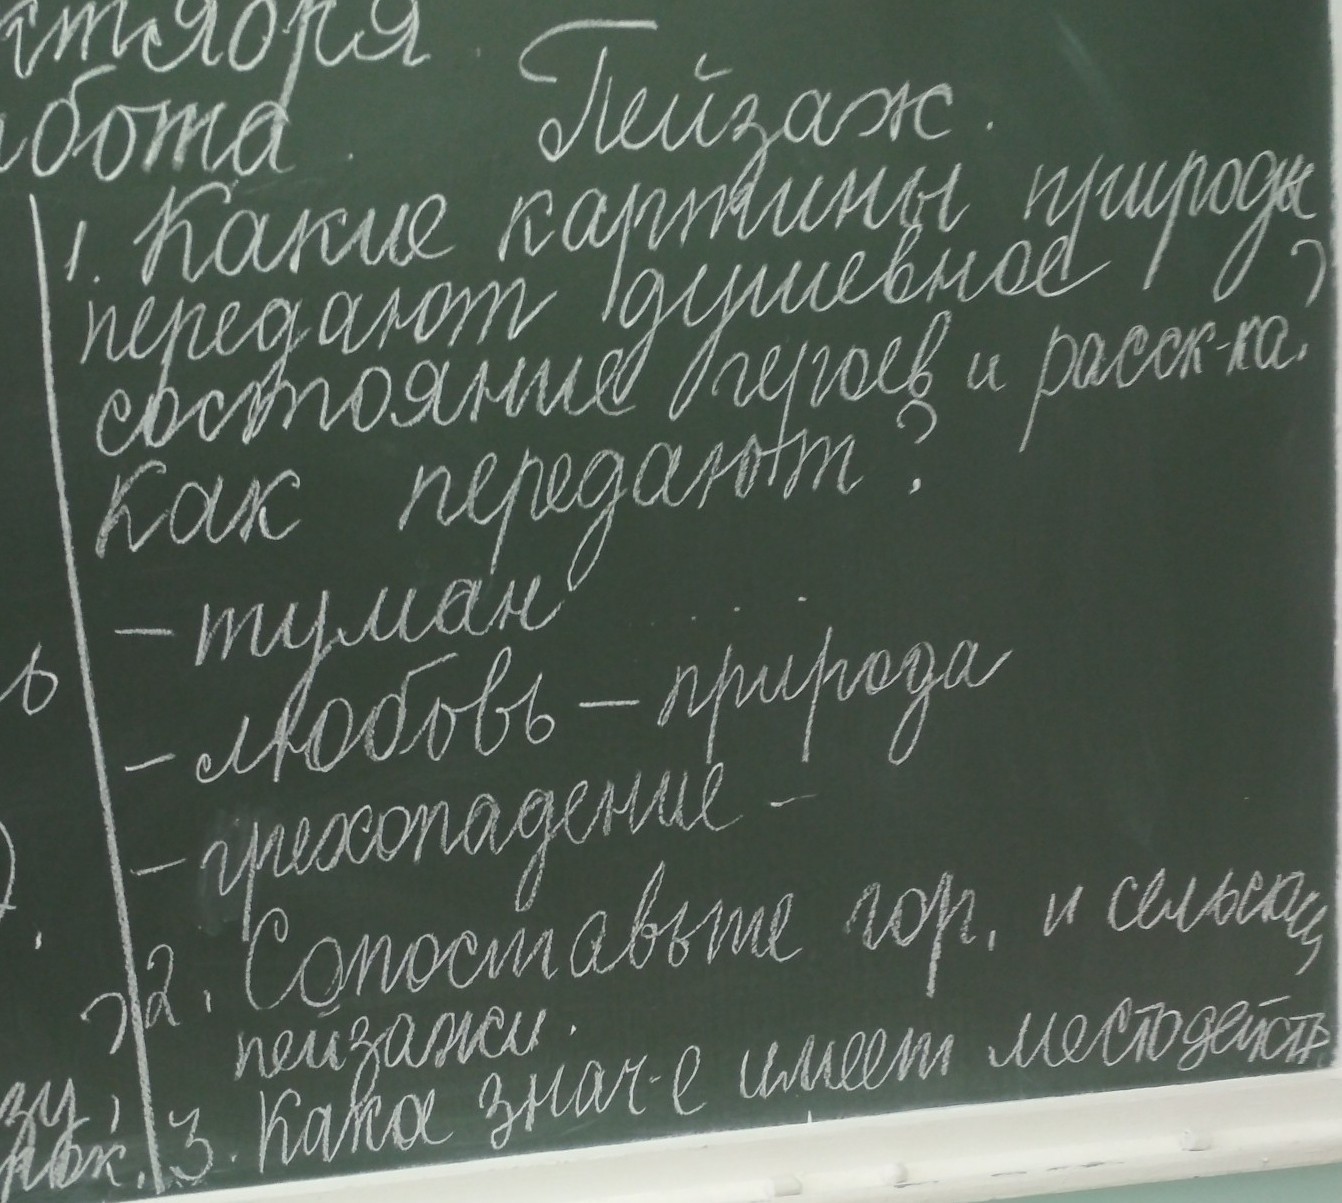 ктября
абота
Пейзаж.
1. Какие картины природы
передают душевное
состояние героев и расск-ка?
Как передают?
- туман
- любовь - природа
- грехопадение -
2. Сопоставьте гор. и сельский
пейзажи.
3. Какое знач-е имеет место действ
ь
)
зу,